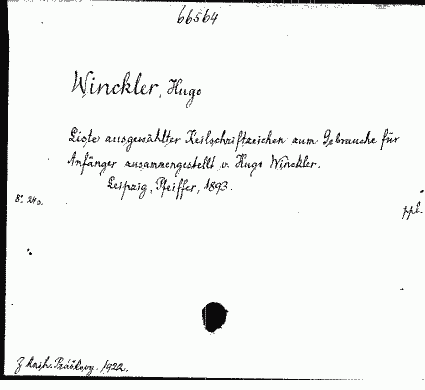 66564
Winckler, Hugo
Liste ausgewählter Keilschriftzeichen zum Gebrauche für
Anfänger zusammengestellt v. Hugo Winckler.
Leipzig, Pfeiffer, 1893.
8°. 24 s.
ppl.
Z knih. Práškovy. 1922.